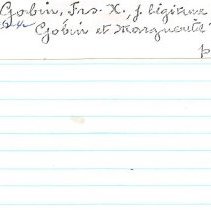 Gobin, Frs. X., f. légitime
Gobin et Marguerite
p